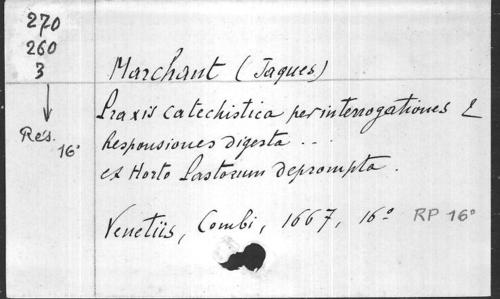 270
260
3
Marchant (Jaques)
Praxis catechistica per interrogationes &
Responsiones digesta ...
ex Horto Pastorum deprompta.
Rés.
16°
Venetiis, Combi, 1667, 16° RP 16°